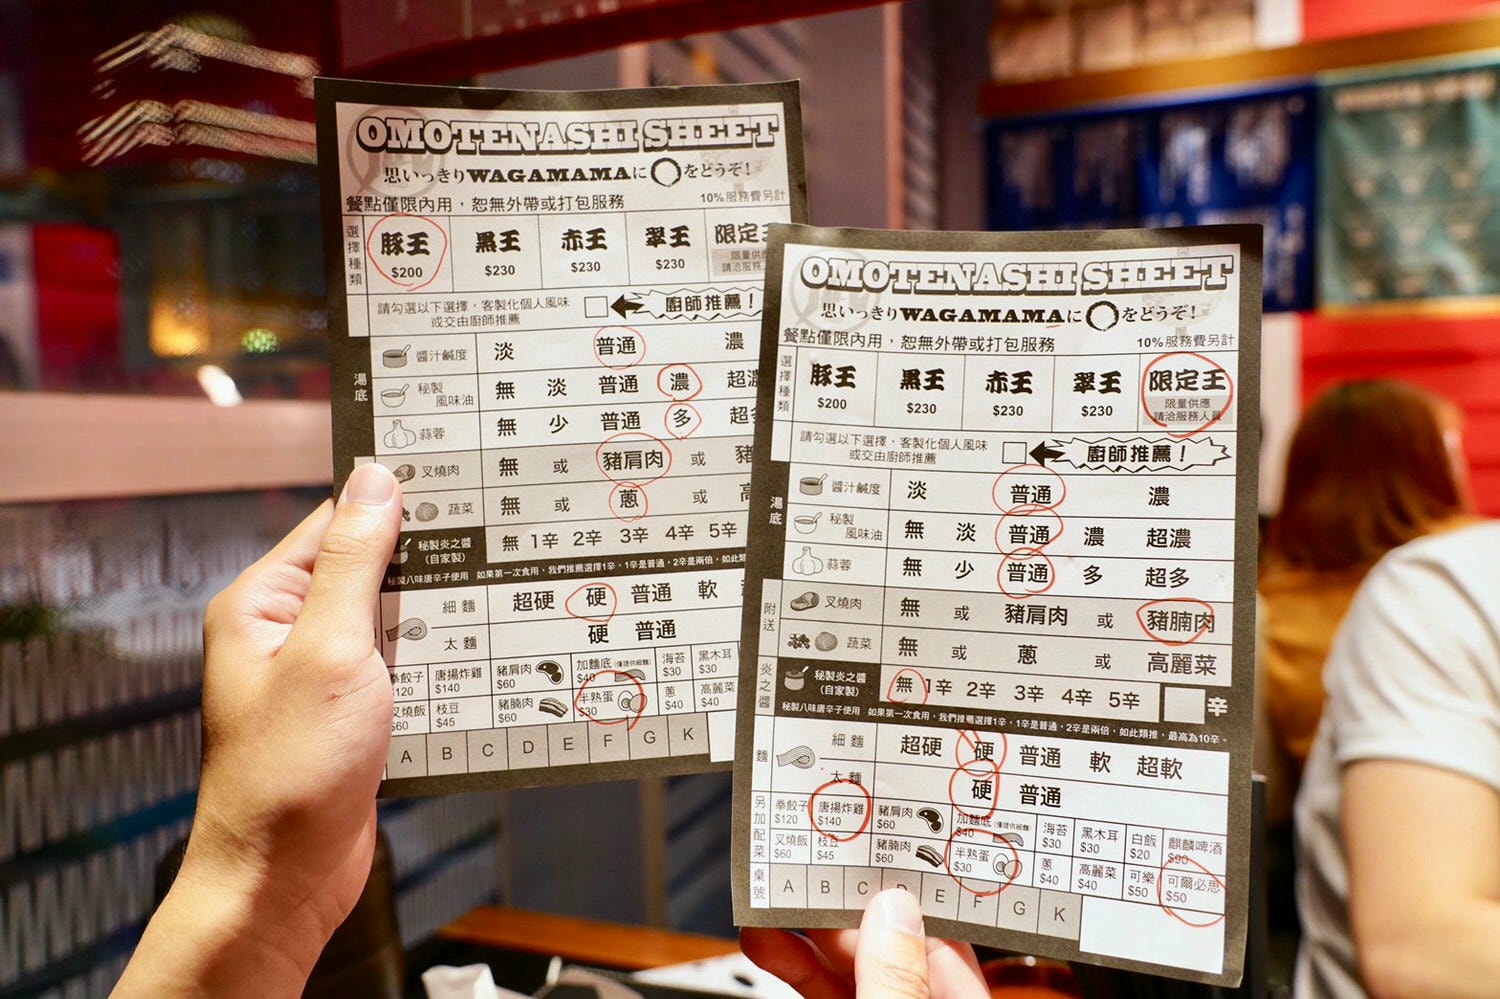 OMOTENASHI SHEET
思いっきりWAGAMAMAに〇をどうぞ!
餐點僅限內用，恕無外帶或打包服務 10%服務費另計
選擇種類
豚王 黑王 赤王 翠王 限定王
$200 $230 $230 $230 限量供應
請洽服務人員
請勾選以下選擇，客製化個人風味
或交由廚師推薦
廚師推薦！
湯底
醬汁鹹度 淡 普通 濃
秘製風味油 無 淡 普通 濃 超濃
蒜蓉 無 少 普通 多 超
叉燒肉 無 或 豬肩肉 或 豬
蔬菜 無 或 蔥 或 高
秘製炎之醬
(自家製)
無 1辛 2辛 3辛 4辛 5辛
秘製八味唐辛子使用 如果第一次食用，我們推薦選擇1辛，1辛是普通，2辛是兩倍，如此類
細麵 超硬 硬 普通 軟
太麵 硬 普通
餃子 唐揚炸雞 豬肩肉 加麵底(僅提供細麵) 海苔 黑木耳
$120 $140 $60 $40 $30 $30
叉燒飯 枝豆 豬腩肉 半熟蛋 蔥 高麗菜
$60 $45 $60 $30 $40 $40
A B C D E F G K
OMOTENASHI SHEET
思いっきりWAGAMAMAに〇をどうぞ!
餐點僅限內用，恕無外帶或打包服務 10%服務費另計
選擇種類
豚王 黑王 赤王 翠王 限定王
$200 $230 $230 $230 限量供應
請洽服務人員
請勾選以下選擇，客製化個人風味
或交由廚師推薦
廚師推薦！
湯底
醬汁鹹度 淡 普通 濃
秘製風味油 無 淡 普通 濃 超濃
蒜蓉 無 少 普通 多 超多
附送
叉燒肉 無 或 豬肩肉 或 豬腩肉
蔬菜 無 或 蔥 或 高麗菜
炎之醬
秘製炎之醬
(自家製)
無 1辛 2辛 3辛 4辛 5辛 辛
秘製八味唐辛子使用 如果第一次食用，我們推薦選擇1辛，1辛是普通，2辛是兩倍，如此類推，最高為10辛。
麵
細麵 超硬 硬 普通 軟 超軟
太麵 硬 普通
另加配菜
拳餃子 唐揚炸雞 豬肩肉 加麵底(僅提供細麵) 海苔 黑木耳 白飯 麒麟啤酒
$120 $140 $60 $40 $30 $30 $20 $90
叉燒飯 枝豆 豬腩肉 半熟蛋 蔥 高麗菜 可樂 可爾必思
$60 $45 $60 $30 $40 $40 $50 $50
桌號 A B C D E F G K